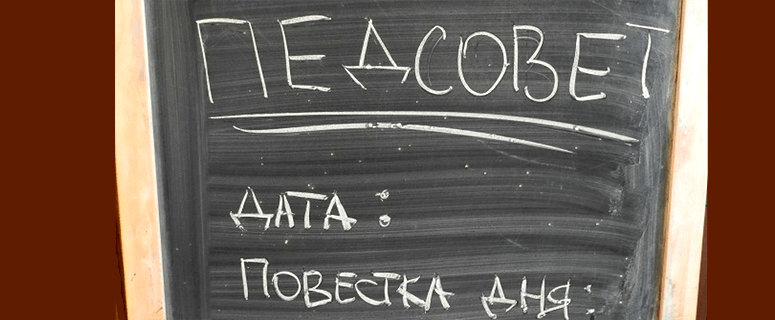 ПЕДСОВЕТ
ДАТА:
ПОВЕСТКА ДНЯ: